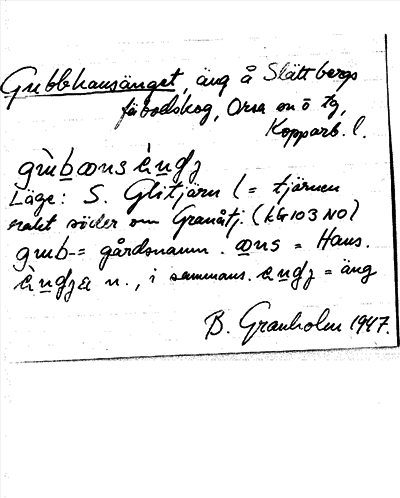 Gubbhansänget, äng å Slättbergs
fäbodskog, Orsa sn o tg,
Kopparb. l.
Läge: S. Glitjärn (= tjärnen
rakt söder om Granåtj. (KG103 NO)
= gårdsnamn. = Hans.
n., i sammans. = äng
B. Granholm 1947.